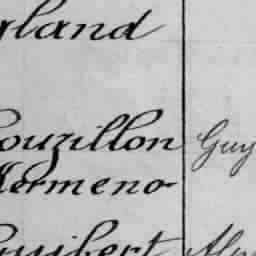 rland
Couzillon Guy
Kermeno
Guibert Alp